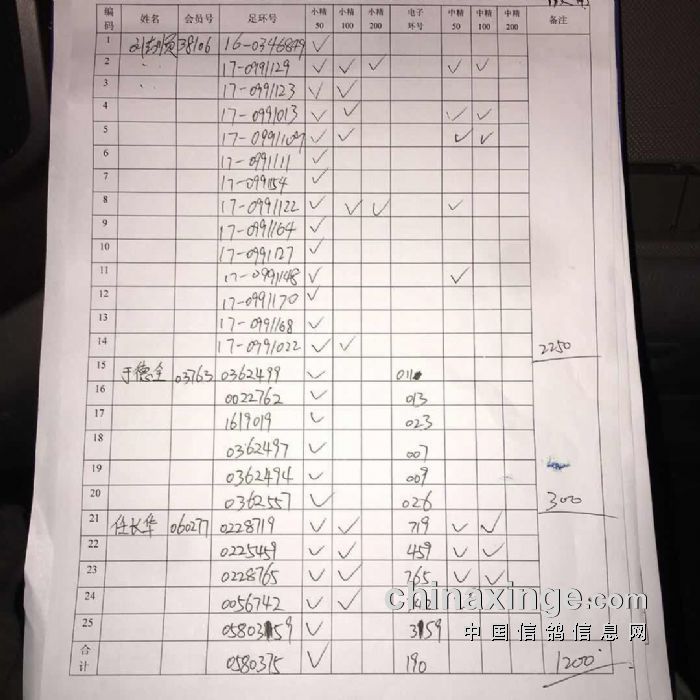 编码 姓名 会员号 足环号 小精50 小精100 小精200 电子环号 中精50 中精100 中精200 备注
1 38106 16-0346849 ✓
2 〃 17-0991129 ✓ ✓ ✓ ✓ ✓
3 〃 17-0991123 ✓ ✓
4 17-0991013 ✓ ✓ ✓ ✓
5 ✓ ✓ ✓ ✓
6 17-0991111 ✓
7 17-099154 ✓
8 17-0991122 ✓ ✓ ✓ ✓
9 17-0991164 ✓
10 17-0991127 ✓
11 17-0991148 ✓ ✓
12 17-0991170 ✓
13 17-0991168 ✓
14 17-0991022 ✓ ✓ 2250
15 于德全 03763 0362499 ✓
16 0022762 ✓ 013
17 1619019 ✓ 023
18 0362497 ✓ 007
19 0362494 ✓ 009
20 0362557 ✓ 026 300
21 任长华 060277 0228719 ✓ ✓ 719 ✓ ✓
22 0225459 ✓ ✓ 459 ✓ ✓
23 0228765 ✓ ✓ 765 ✓ ✓
24 0056742 ✓ ✓
chinaxinge.com
25 0580359 ✓ 3159
中国信鸽信息网
合计 0580375 ✓ 190 1200